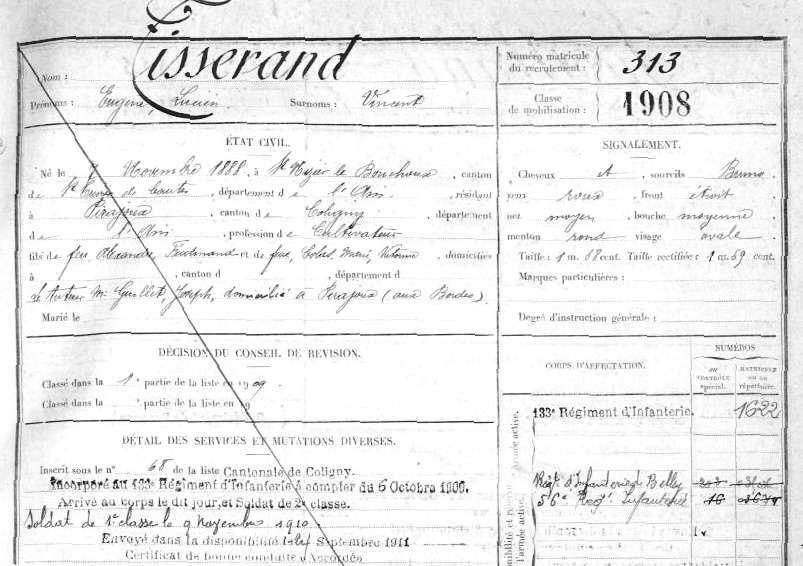 Nom : Tisserand
Prénoms : Eugène, Lucien Surnoms : Vincent
Numéro matricule du recrutement : 313
Classe de mobilisation : 1908
ÉTAT CIVIL.
Né le 7 Novembre 1888, à St Nizier le Bouchoux, canton
de St Trivier de Courtes, département de l'Ain, résidant
à Pirajoux, canton de Coligny, département
de l'Ain, profession de Cultivateur
fils de feu Alexandre Ferdinand et de feue, Marie, domiciliés
à , canton d , département d
Le tuteur Mr Guillet, Joseph, domicilié à Pirajoux (aux Bordes).
Marié le
SIGNALEMENT.
Cheveux sourcils Bruns
yeux roux, front étroit
nez moyen, bouche moyenne
menton rond visage ovale
Taille : 1 m. 68 cent. Taille rectifiée : 1 m. 69 cent.
Marques particulières :
Degré d'instruction générale :
DÉCISION DU CONSEIL DE REVISION.
Classé dans la 1e partie de la liste en 1909.
Classé dans la e partie de la liste en 19
DÉTAIL DES SERVICES ET MUTATIONS DIVERSES.
Inscrit sous le n° 68 de la liste Cantonale de Coligny.
Incorporé au 133e Régiment d'Infanterie à compter du 6 Octobre 1909.
Arrivé au corps le dit jour, et Soldat de 2e classe.
Soldat de 1e classe le 9 novembre 1910.
Envoyé dans la disponibilité le Septembre 1911
Certificat de bonne conduite "Accordé"
CORPS D'AFFECTATION.
NUMÉROS
au contrôle spécial.
matricule ou au répertoire.
Armée active.
133e Régiment d'Infanterie. 1622
Disponibilité et réserve de l'armée active.
Régt d'Infanterie de Belley
56e Régt Infanterie 16